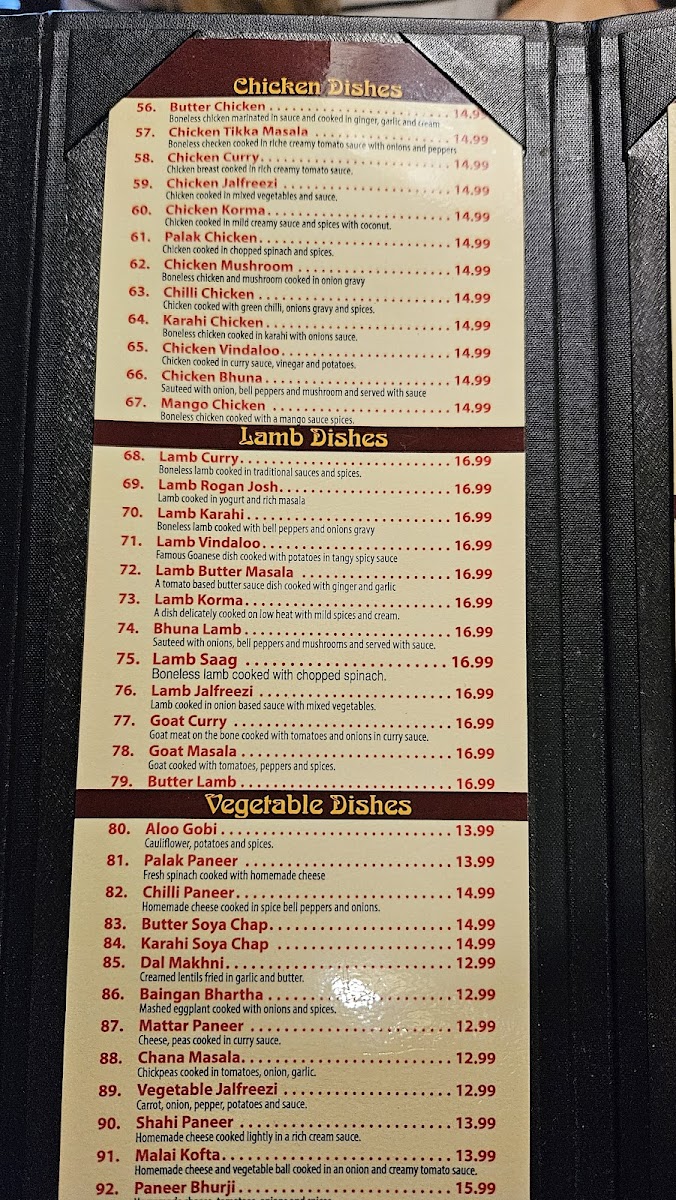 Chicken Dishes
56. Butter Chicken . . . . . . . . . . . . . . . . . . . . . . . . . . 14.99
Boneless chicken marinated in sauce and cooked in ginger, garlic and cream
57. Chicken Tikka Masala . . . . . . . . . . . . . . . . . . . . 14.99
Boneless checken cooked in riche creamy tomato sauce with onions and peppers
58. Chicken Curry. . . . . . . . . . . . . . . . . . . . . . . . . . . 14.99
Chicken breast cooked in rich creamy tomato sauce.
59. Chicken Jalfreezi . . . . . . . . . . . . . . . . . . . . . . . . 14.99
Chicken cooked in mixed vegetables and sauce.
60. Chicken Korma. . . . . . . . . . . . . . . . . . . . . . . . . . 14.99
Chicken cooked in mild creamy sauce and spices with coconut.
61. Palak Chicken. . . . . . . . . . . . . . . . . . . . . . . . . . . 14.99
Chicken cooked in chopped spinach and spices.
62. Chicken Mushroom . . . . . . . . . . . . . . . . . . . . . . 14.99
Boneless chicken and mushroom cooked in onion gravy
63. Chilli Chicken . . . . . . . . . . . . . . . . . . . . . . . . . . . 14.99
Chicken cooked with green chilli, onions gravy and spices.
64. Karahi Chicken. . . . . . . . . . . . . . . . . . . . . . . . . . 14.99
Boneless chicken cooked in karahi with onions sauce.
65. Chicken Vindaloo. . . . . . . . . . . . . . . . . . . . . . . . 14.99
Chicken cooked in curry sauce, vinegar and potatoes.
66. Chicken Bhuna. . . . . . . . . . . . . . . . . . . . . . . . . . 14.99
Sauteed with onion, bell peppers and mushroom and served with sauce
67. Mango Chicken . . . . . . . . . . . . . . . . . . . . . . . . . 14.99
Boneless chicken cooked with a mango sauce spices.
Lamb Dishes
68. Lamb Curry. . . . . . . . . . . . . . . . . . . . . . . . . . . . . 16.99
Boneless lamb cooked in traditional sauces and spices.
69. Lamb Rogan Josh. . . . . . . . . . . . . . . . . . . . . . . . 16.99
Lamb cooked in yogurt and rich masala
70. Lamb Karahi. . . . . . . . . . . . . . . . . . . . . . . . . . . . 16.99
Boneless lamb cooked with bell peppers and onions gravy
71. Lamb Vindaloo. . . . . . . . . . . . . . . . . . . . . . . . . . 16.99
Famous Goanese dish cooked with potatoes in tangy spicy sauce
72. Lamb Butter Masala . . . . . . . . . . . . . . . . . . . . . 16.99
A tomato based butter sauce dish cooked with ginger and garlic
73. Lamb Korma. . . . . . . . . . . . . . . . . . . . . . . . . . . . 16.99
A dish delicately cooked on low heat with mild spices and cream.
74. Bhuna Lamb. . . . . . . . . . . . . . . . . . . . . . . . . . . . 16.99
Sauteed with onions, bell peppers and mushrooms and served with sauce.
75. Lamb Saag . . . . . . . . . . . . . . . . . . . . . . . . 16.99
Boneless lamb cooked with chopped spinach.
76. Lamb Jalfreezi . . . . . . . . . . . . . . . . . . . . . . . . . . 16.99
Lamb cooked in onion based sauce with mixed vegetables.
77. Goat Curry . . . . . . . . . . . . . . . . . . . . . . . . . . . . . 16.99
Goat meat on the bone cooked with tomatoes and onions in curry sauce.
78. Goat Masala . . . . . . . . . . . . . . . . . . . . . . . . . . . . 16.99
Goat cooked with tomatoes, peppers and spices.
79. Butter Lamb . . . . . . . . . . . . . . . . . . . . . . . . . . . . 16.99
Vegetable Dishes
80. Aloo Gobi . . . . . . . . . . . . . . . . . . . . . . . . . . . . . . 13.99
Cauliflower, potatoes and spices.
81. Palak Paneer . . . . . . . . . . . . . . . . . . . . . . . . . . . 13.99
Fresh spinach cooked with homemade cheese
82. Chilli Paneer. . . . . . . . . . . . . . . . . . . . . . . . . . . . 14.99
Homemade cheese cooked in spice bell peppers and onions.
83. Butter Soya Chap. . . . . . . . . . . . . . . . . . . . . . . . 14.99
84. Karahi Soya Chap . . . . . . . . . . . . . . . . . . . . . . . 14.99
85. Dal Makhni. . . . . . . . . . . . . . . . . . . . . . . . . . . . . 12.99
Creamed lentils fried in garlic and butter.
86. Baingan Bhartha . . . . . . . . . . . . . . . . . . . . . . . . 12.99
Mashed eggplant cooked with onions and spices.
87. Mattar Paneer . . . . . . . . . . . . . . . . . . . . . . . . . . 12.99
Cheese, peas cooked in curry sauce.
88. Chana Masala. . . . . . . . . . . . . . . . . . . . . . . . . . . 12.99
Chickpeas cooked in tomatoes, onion, garlic.
89. Vegetable Jalfreezi . . . . . . . . . . . . . . . . . . . . . . 12.99
Carrot, onion, pepper, potatoes and sauce.
90. Shahi Paneer . . . . . . . . . . . . . . . . . . . . . . . . . . . 13.99
Homemade cheese cooked lightly in a rich cream sauce.
91. Malai Kofta. . . . . . . . . . . . . . . . . . . . . . . . . . . . . 13.99
Homemade cheese and vegetable ball cooked in an onion and creamy tomato sauce.
92. Paneer Bhurji. . . . . . . . . . . . . . . . . . . . . . . . . . . 15.99